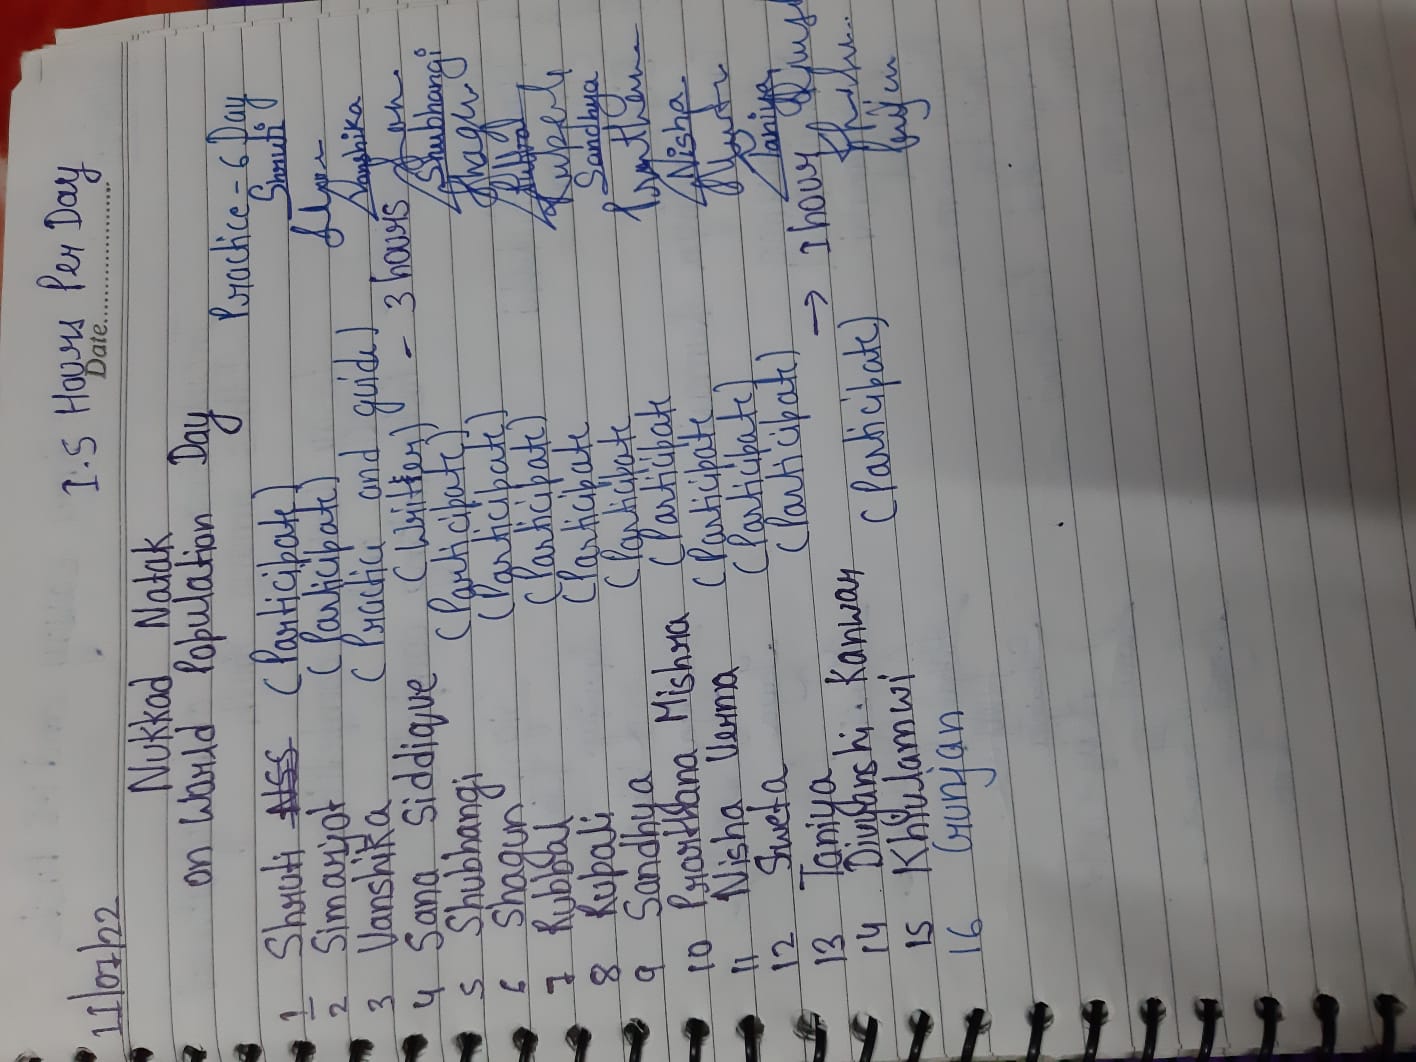 11/07/22 1.5 Hours Per Day
Date
Nukkad Natak
on World Population Day
Practice - 6 Day
1 Shruti (Participate) Shruti
2 Simarjot (Participate)
3 Vanshika (Practice and guide) Vanshika
4 Sana Siddique (Writter) - 3 hours
5 Shubhangi (Participate) Shubhangi
6 Shagun (Participate) Shagun
7 Rubbal (Participate) Rubbal
8 Rupali (Participate Rupali
9 Sandhya (Participate Sandhya
10 Prarthana Mishra (Participate
11 Nisha Verma (Participate Nisha
12 Sweta (Participate)
13 Taniya (Participate) Taniya
14 Divyanshi Kanwar → 1 hour
15 Khyulamwi (Participate)
16 Gunjan